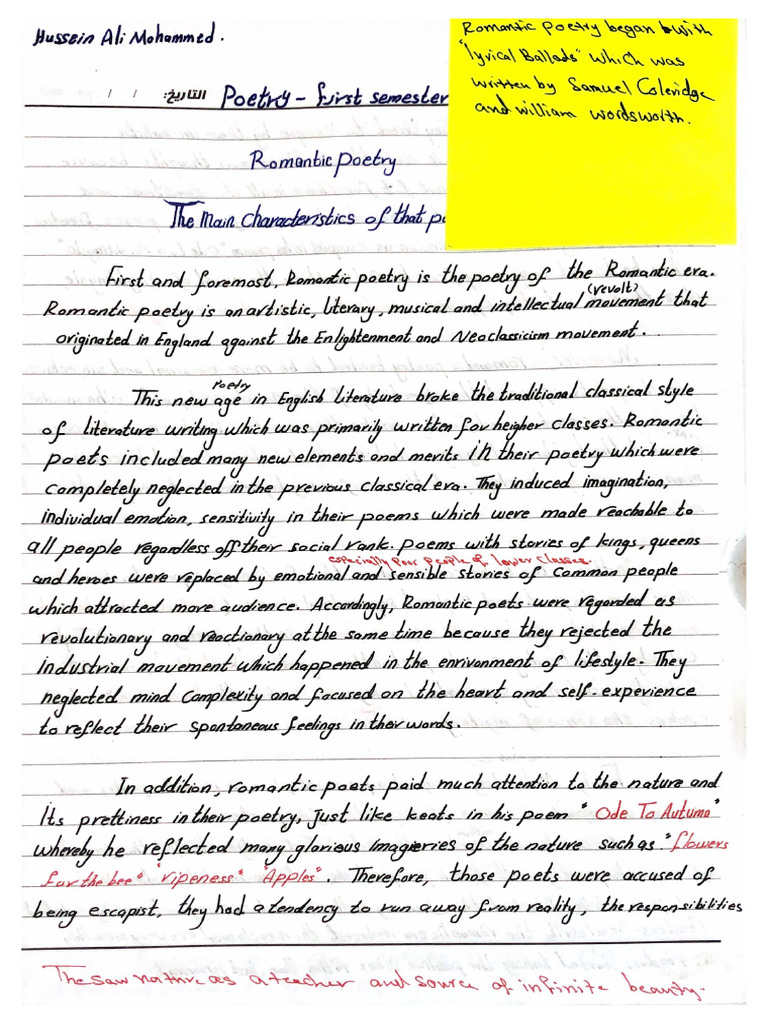 Hussein Ali Mohammed.
Romantic poetry began with
"lyrical Ballads" which was
written by Samuel Coleridge
and william wordsworth.
التاريخ: / /
Poetry - first semester
Romantic poetry
The Main characteristics of that
First and foremost, Romantic poetry is the poetry of the Romantic era.
(revolt)
Romantic poetry is an artistic, literary, musical and intellectual movement that
originated in England against the Enlightenment and Neoclassicism movement.
Poetry
This new age in English literature broke the traditional classical style
of literature writing which was primarily written for heigher classes. Romantic
poets included many new elements and merits in their poetry which were
completely neglected in the previous classical era. They induced imagination,
individual emotion, sensitivity in their poems which were made reachable to
all people regardless off their social rank. poems with stories of kings, queens
especially poor people of lower classes.
and heroes were replaced by emotional and sensible stories of common people
which attracted more audience. Accordingly, Romantic poets were regarded as
revolutionary and reactionary at the same time because they rejected the
industrial movement which happened in the enrivonment of lifestyle. They
neglected mind complexity and focused on the heart and self-experience
to reflect their spontaneous feelings in their words.
In addition, romantic poets paid much attention to the nature and
its prettiness in their poetry, just like keats in his poem "Ode To Autumn"
whereby he reflected many glorious imageries of the nature such as "flowers
for the bee" "ripeness" "Apples". Therefore, those poets were accused of
being escapist, they had a tendency to run away from reality, the responsibilities
The saw nature as a teacher and source of infinite beauty.